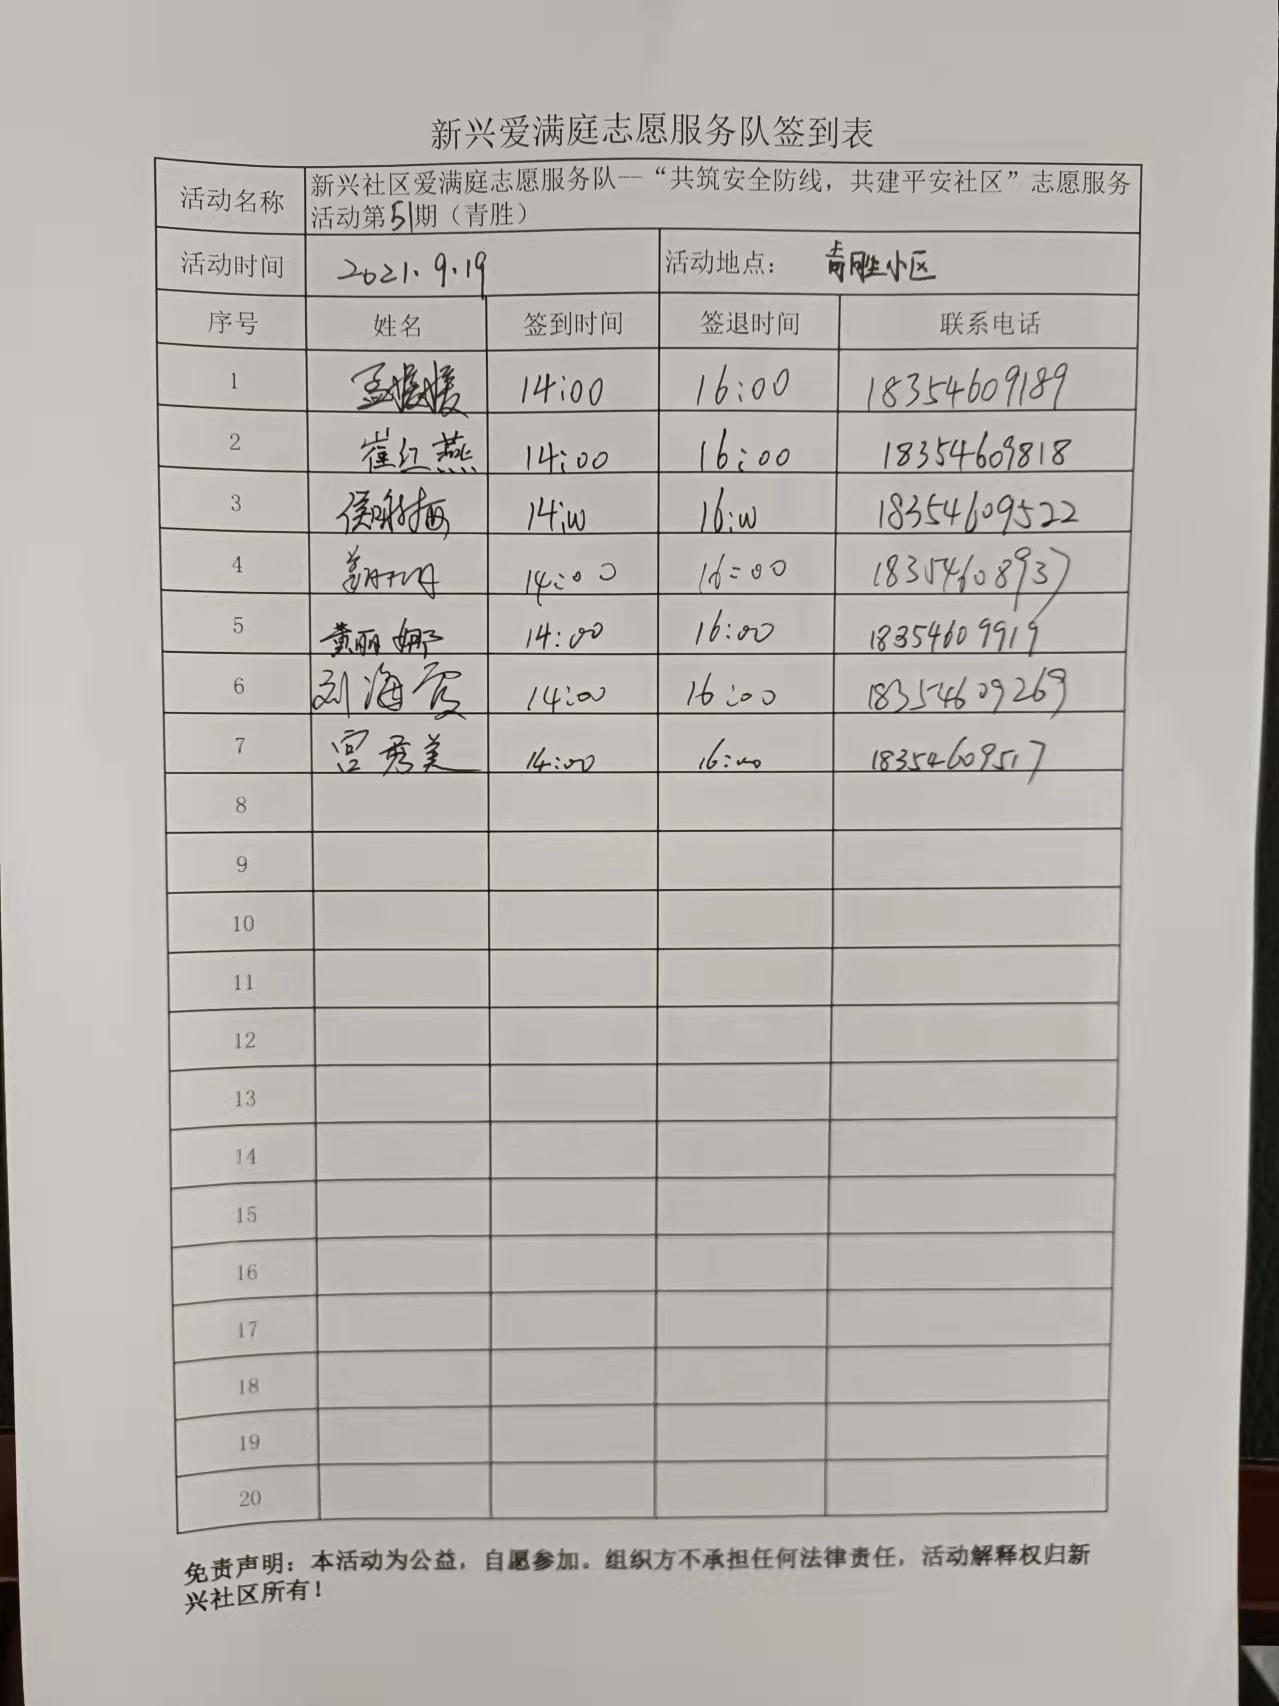 新兴爱满庭志愿服务队签到表
活动名称 新兴社区爱满庭志愿服务队--“共筑安全防线，共建平安社区”志愿服务
活动第51期（青胜）
活动时间 2021.9.19 活动地点： 青胜小区
序号 姓名 签到时间 签退时间 联系电话
1 孟媛媛 14:00 16:00 18354609189
2 崔红燕 14:00 16:00 18354609818
3 14:00 16:00 18354609522
4 14:00 16:00 18354608937
5 黄丽娜 14:00 16:00 18354609919
6 刘海霞 14:00 16:00 18354609269
7 宫秀美 14:00 16:00 18354609517
8
9
10
11
12
13
14
15
16
17
18
19
20
免责声明：本活动为公益，自愿参加。组织方不承担任何法律责任，活动解释权归新
兴社区所有！